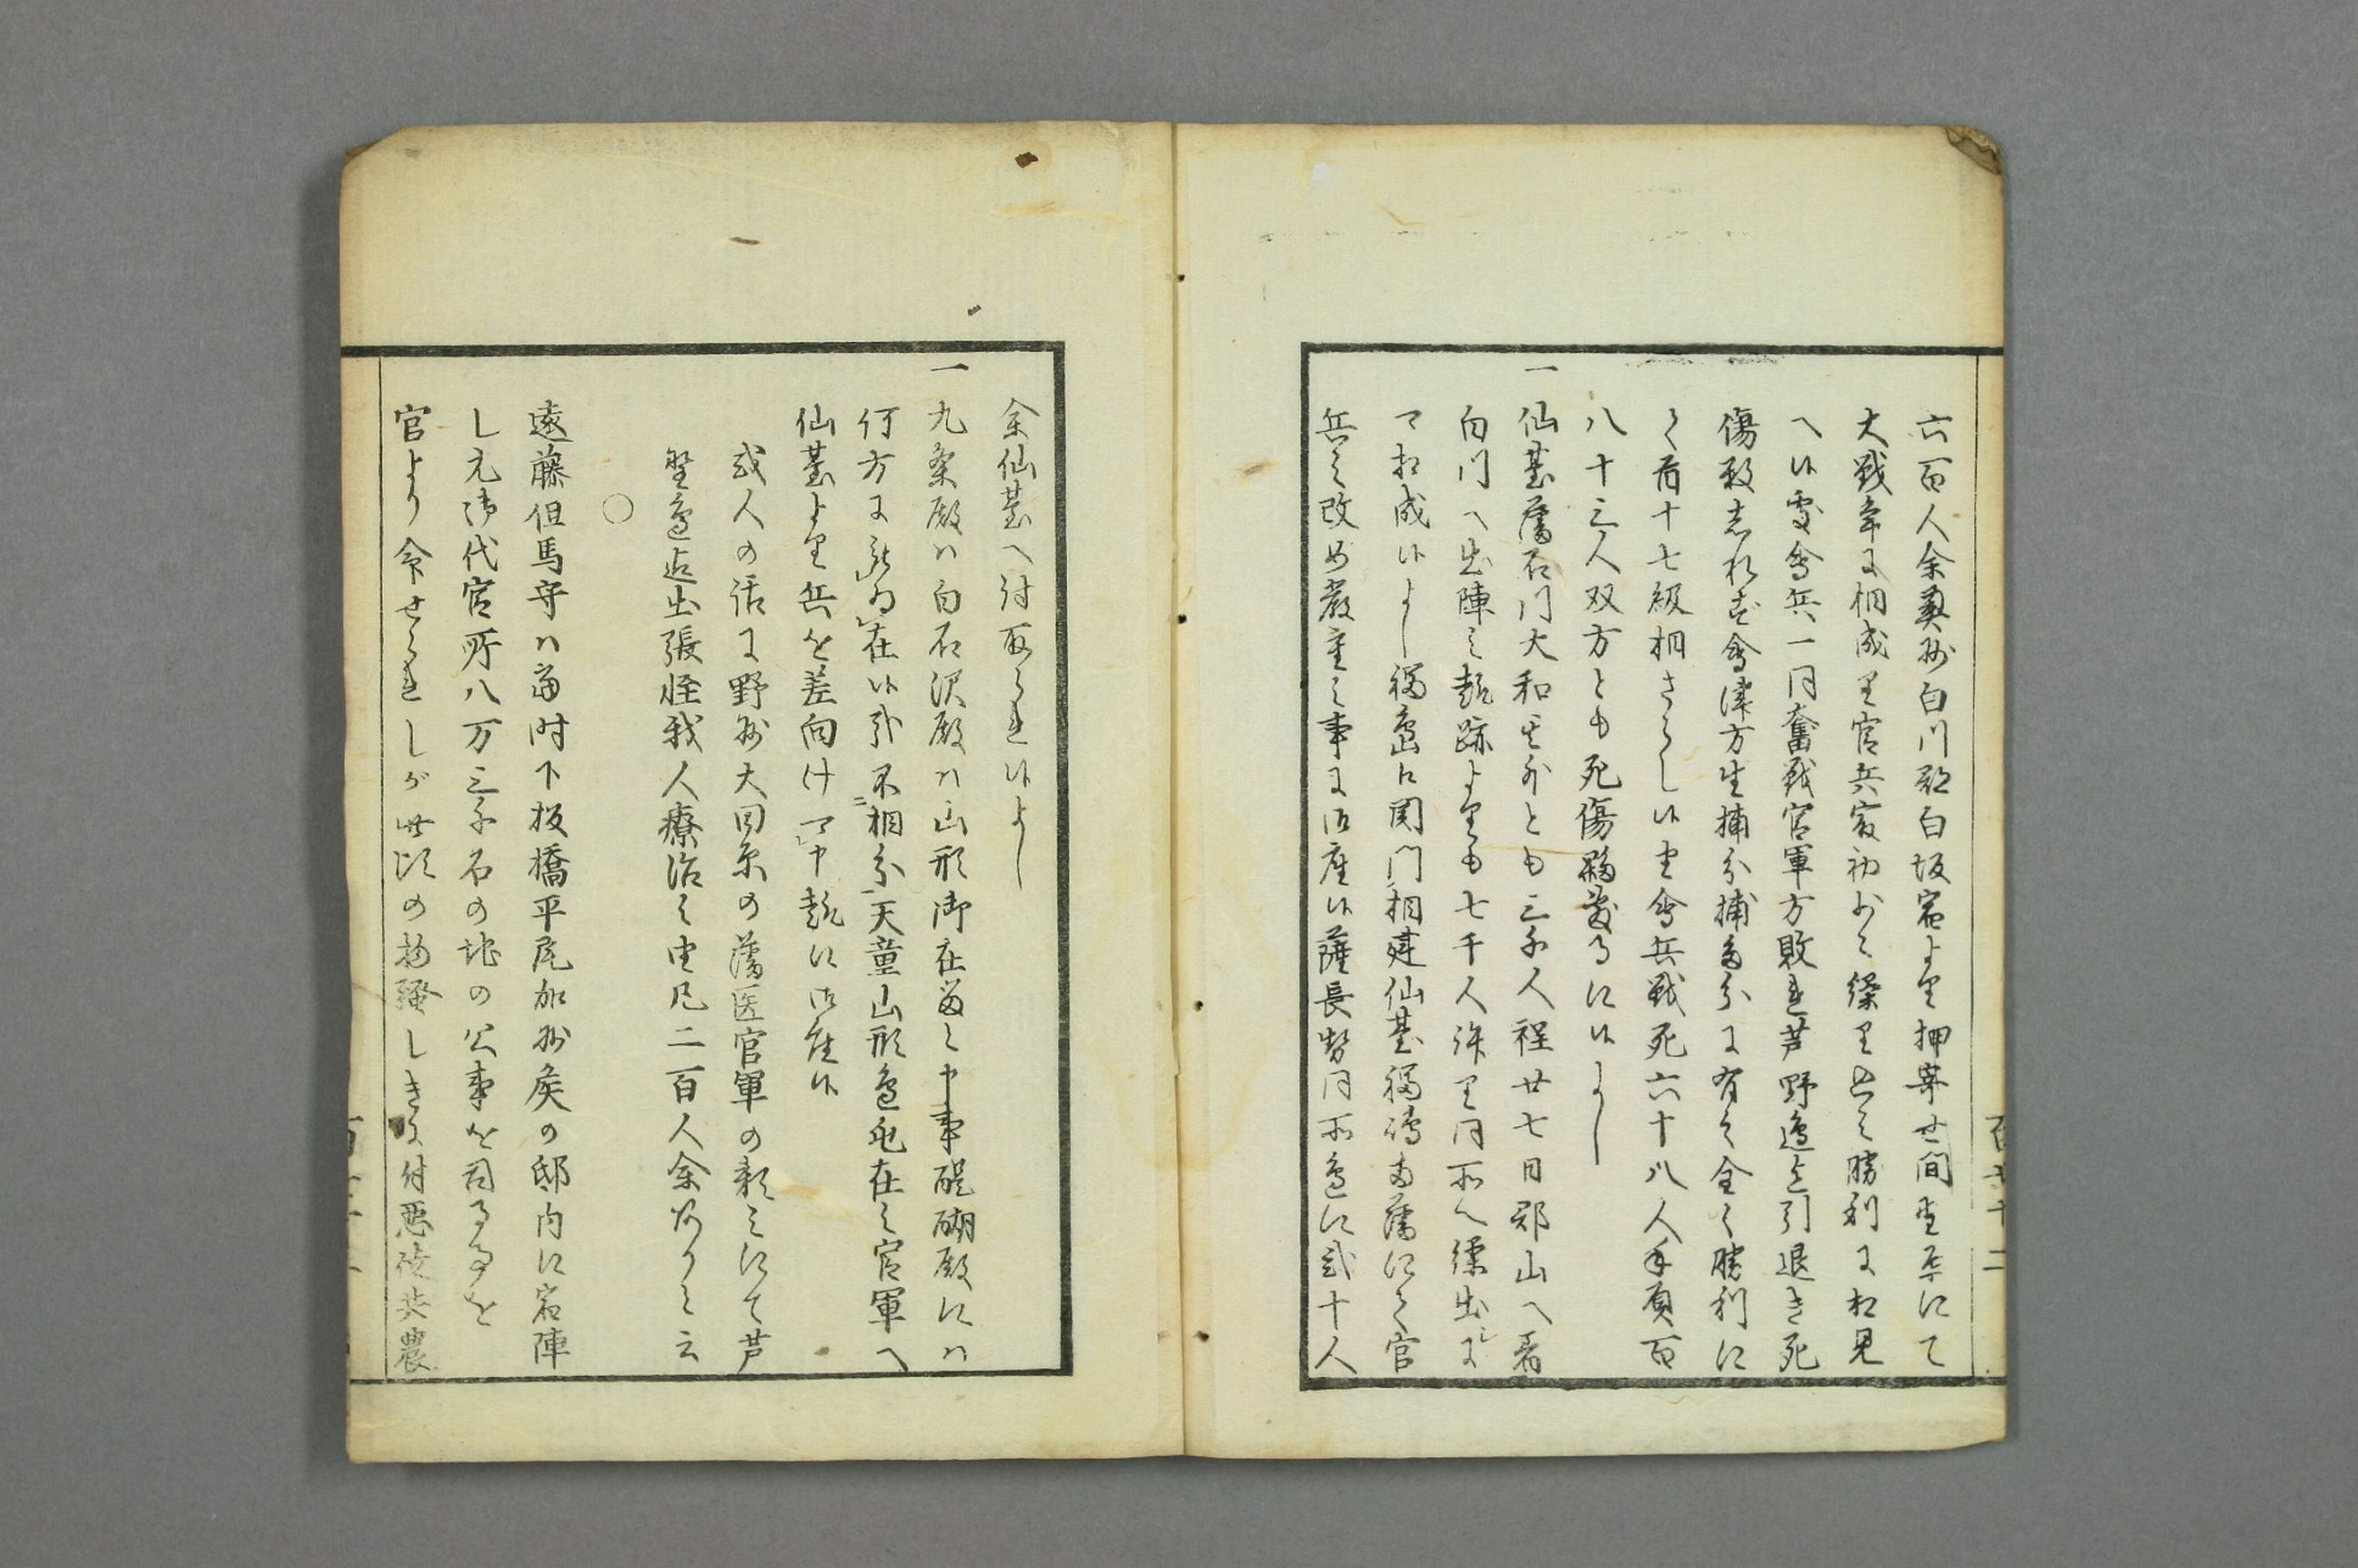 六百人余奥州白川郡白坂宿より押寄せ間里所にて
大戦争に相成り官兵最初少々繰り出し勝利に相見
へ候処会兵一同奮戦官軍方敗れ芦野辺迄引退き死
傷数しれず会津方生捕分捕多分に有之全く勝利に
て首十七級相さらし候由会兵戦死六十八人手負百
八十三人双方とも死傷夥敷事に候よし
一仙台藩石門大和其外とも三千人程廿七日郡山へ着
白川へ出陣之趣跡よりも七千人許り同所へ繰出シに
可相成候よし福島口関門相建仙台福島両藩にて官
兵之改め厳重之事に御座候薩長勢同所辺に弐十人
余仙台へ討取られ候よし
一九条殿ハ白石沢殿ハ山形御在留之申事醍醐殿にハ
何方に被為在候哉不相分天童山形辺屯在之官軍へ
仙台より兵を差向け可申趣に御座候
或人の話に野州大田原の藩医官軍の頼みにて芦
野辺迄出張怪我人療治之由凡二百人余ありと云
○
遠藤但馬守ハ当時下板橋平尾加州侯の邸内に宿陣
し元御代官所八万三千石の地の公事を司る事を
官より命せられしが此頃の物騒しきに付悪徒共農
百五十二